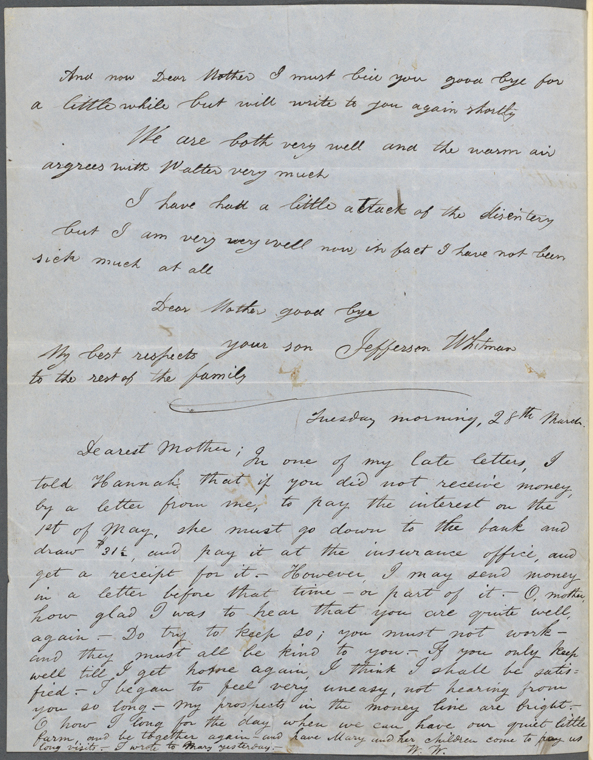 And now Dear Mother I must bid you good bye for
a little while but will write to you again shortly
We are both very well and the warm air
argrees with Walter very much
I have had a little attack of the disentery
but I am very very well now, in fact I have not been
sick much at all
Dear Mother good bye
your son Jefferson Whitman
My best respects
to the rest of the family
Tuesday morning, 28th March.
Dearest Mother; In one of my late letters, I
told Hannah that if you did not receive money,
by a letter from me, to pay the interest on the
1st of May, she must go down to the bank and
draw $31½, and pay it at the insurance office, and
get a receipt for it.— However I may send money
in a letter before that time — or part of it.— O, mother,
how glad I was to hear that you are quite well,
again.— Do try to keep so; you must not work —
and they must all be kind to you.— If you only keep
well till I get home again, I think I shall be satis=
fied.— I began to feel very uneasy, not hearing from
you so long.— My prospects in the money line are bright.—
O how I long for the day when we can have our quiet little
farm, and be together again — and have Mary and her children come to pay us
long visits.— I wrote to Mary yesterday.— W. W.